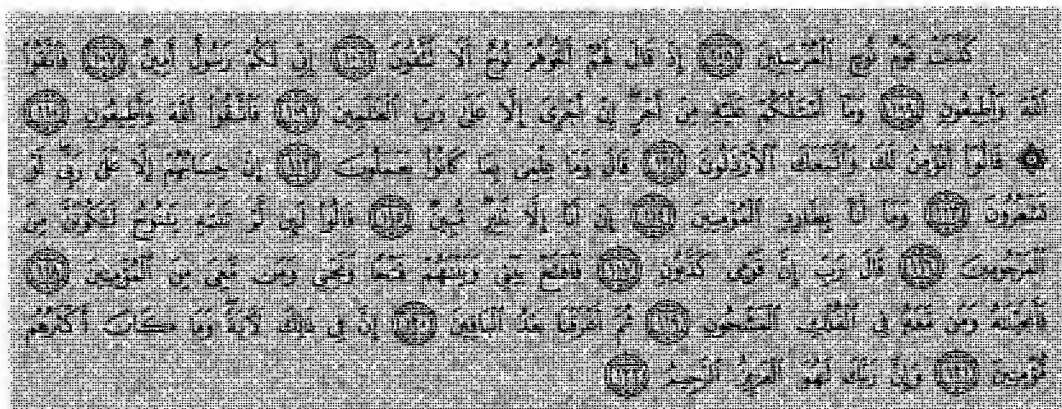 كَذَّبَتْ قَوْمُ نُوحٍ الْمُرْسَلِينَ ﴿١٠٥﴾ إِذْ قَالَ لَهُمْ أَخُوهُمْ نُوحٌ أَلَا تَتَّقُونَ ﴿١٠٦﴾ إِنِّي لَكُمْ رَسُولٌ أَمِينٌ ﴿١٠٧﴾ فَاتَّقُوا
اللَّهَ وَأَطِيعُونِ ﴿١٠٨﴾ وَمَا أَسْأَلُكُمْ عَلَيْهِ مِنْ أَجْرٍ إِنْ أَجْرِيَ إِلَّا عَلَىٰ رَبِّ الْعَالَمِينَ ﴿١٠٩﴾ فَاتَّقُوا اللَّهَ وَأَطِيعُونِ ﴿١١٠﴾
۞ قَالُوا أَنُؤْمِنُ لَكَ وَاتَّبَعَكَ الْأَرْذَلُونَ ﴿١١١﴾ قَالَ وَمَا عِلْمِي بِمَا كَانُوا يَعْمَلُونَ ﴿١١٢﴾ إِنْ حِسَابُهُمْ إِلَّا عَلَىٰ رَبِّي لَوْ
تَشْعُرُونَ ﴿١١٣﴾ وَمَا أَنَا بِطَارِدِ الْمُؤْمِنِينَ ﴿١١٤﴾ إِنْ أَنَا إِلَّا نَذِيرٌ مُبِينٌ ﴿١١٥﴾ قَالُوا لَئِنْ لَمْ تَنْتَهِ يَا نُوحُ لَتَكُونَنَّ مِنَ
الْمَرْجُومِينَ ﴿١١٦﴾ قَالَ رَبِّ إِنَّ قَوْمِي كَذَّبُونِ ﴿١١٧﴾ فَافْتَحْ بَيْنِي وَبَيْنَهُمْ فَتْحًا وَنَجِّنِي وَمَنْ مَعِيَ مِنَ الْمُؤْمِنِينَ ﴿١١٨﴾
فَأَنْجَيْنَاهُ وَمَنْ مَعَهُ فِي الْفُلْكِ الْمَشْحُونِ ﴿١١٩﴾ ثُمَّ أَغْرَقْنَا بَعْدُ الْبَاقِينَ ﴿١٢٠﴾ إِنَّ فِي ذَٰلِكَ لَآيَةً وَمَا كَانَ أَكْثَرُهُمْ
مُؤْمِنِينَ ﴿١٢١﴾ وَإِنَّ رَبَّكَ لَهُوَ الْعَزِيزُ الرَّحِيمُ ﴿١٢٢﴾